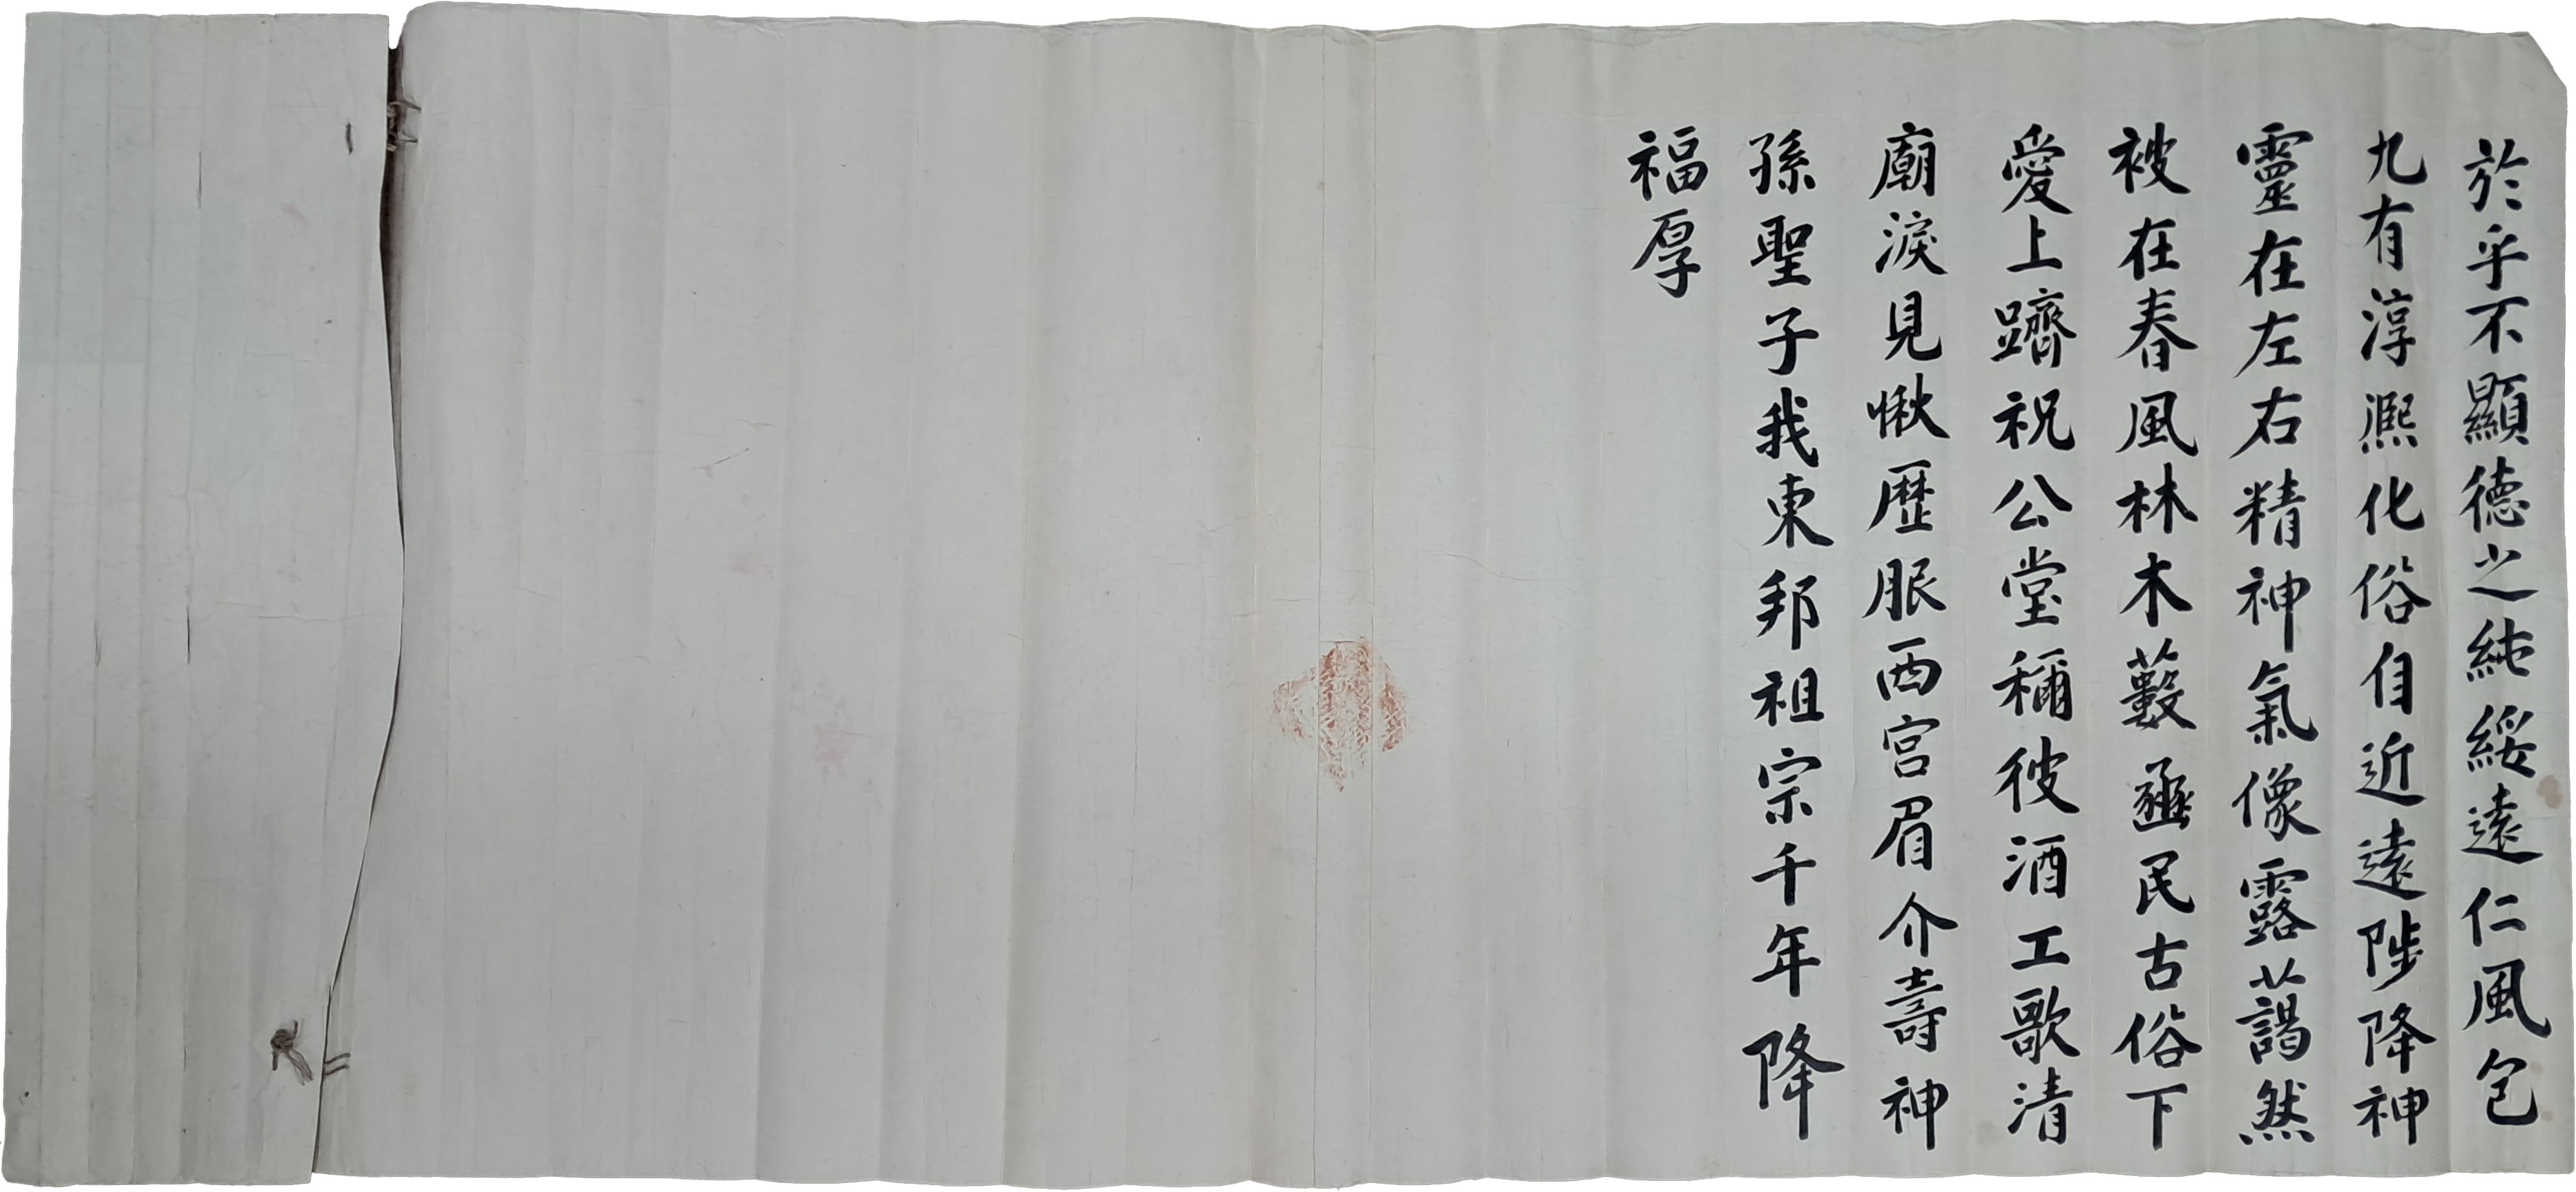 於乎不顯德之純綏遠仁風包
九有淳熈化俗自近遠陟降神
靈在左右精神氣像露藹然
被在春風林木藪亟民古俗下
愛上躋祝公堂稱彼酒工歌清
廟淚見愀歷服西宮眉介壽神
孫聖子我東邦祖宗千年降
福厚